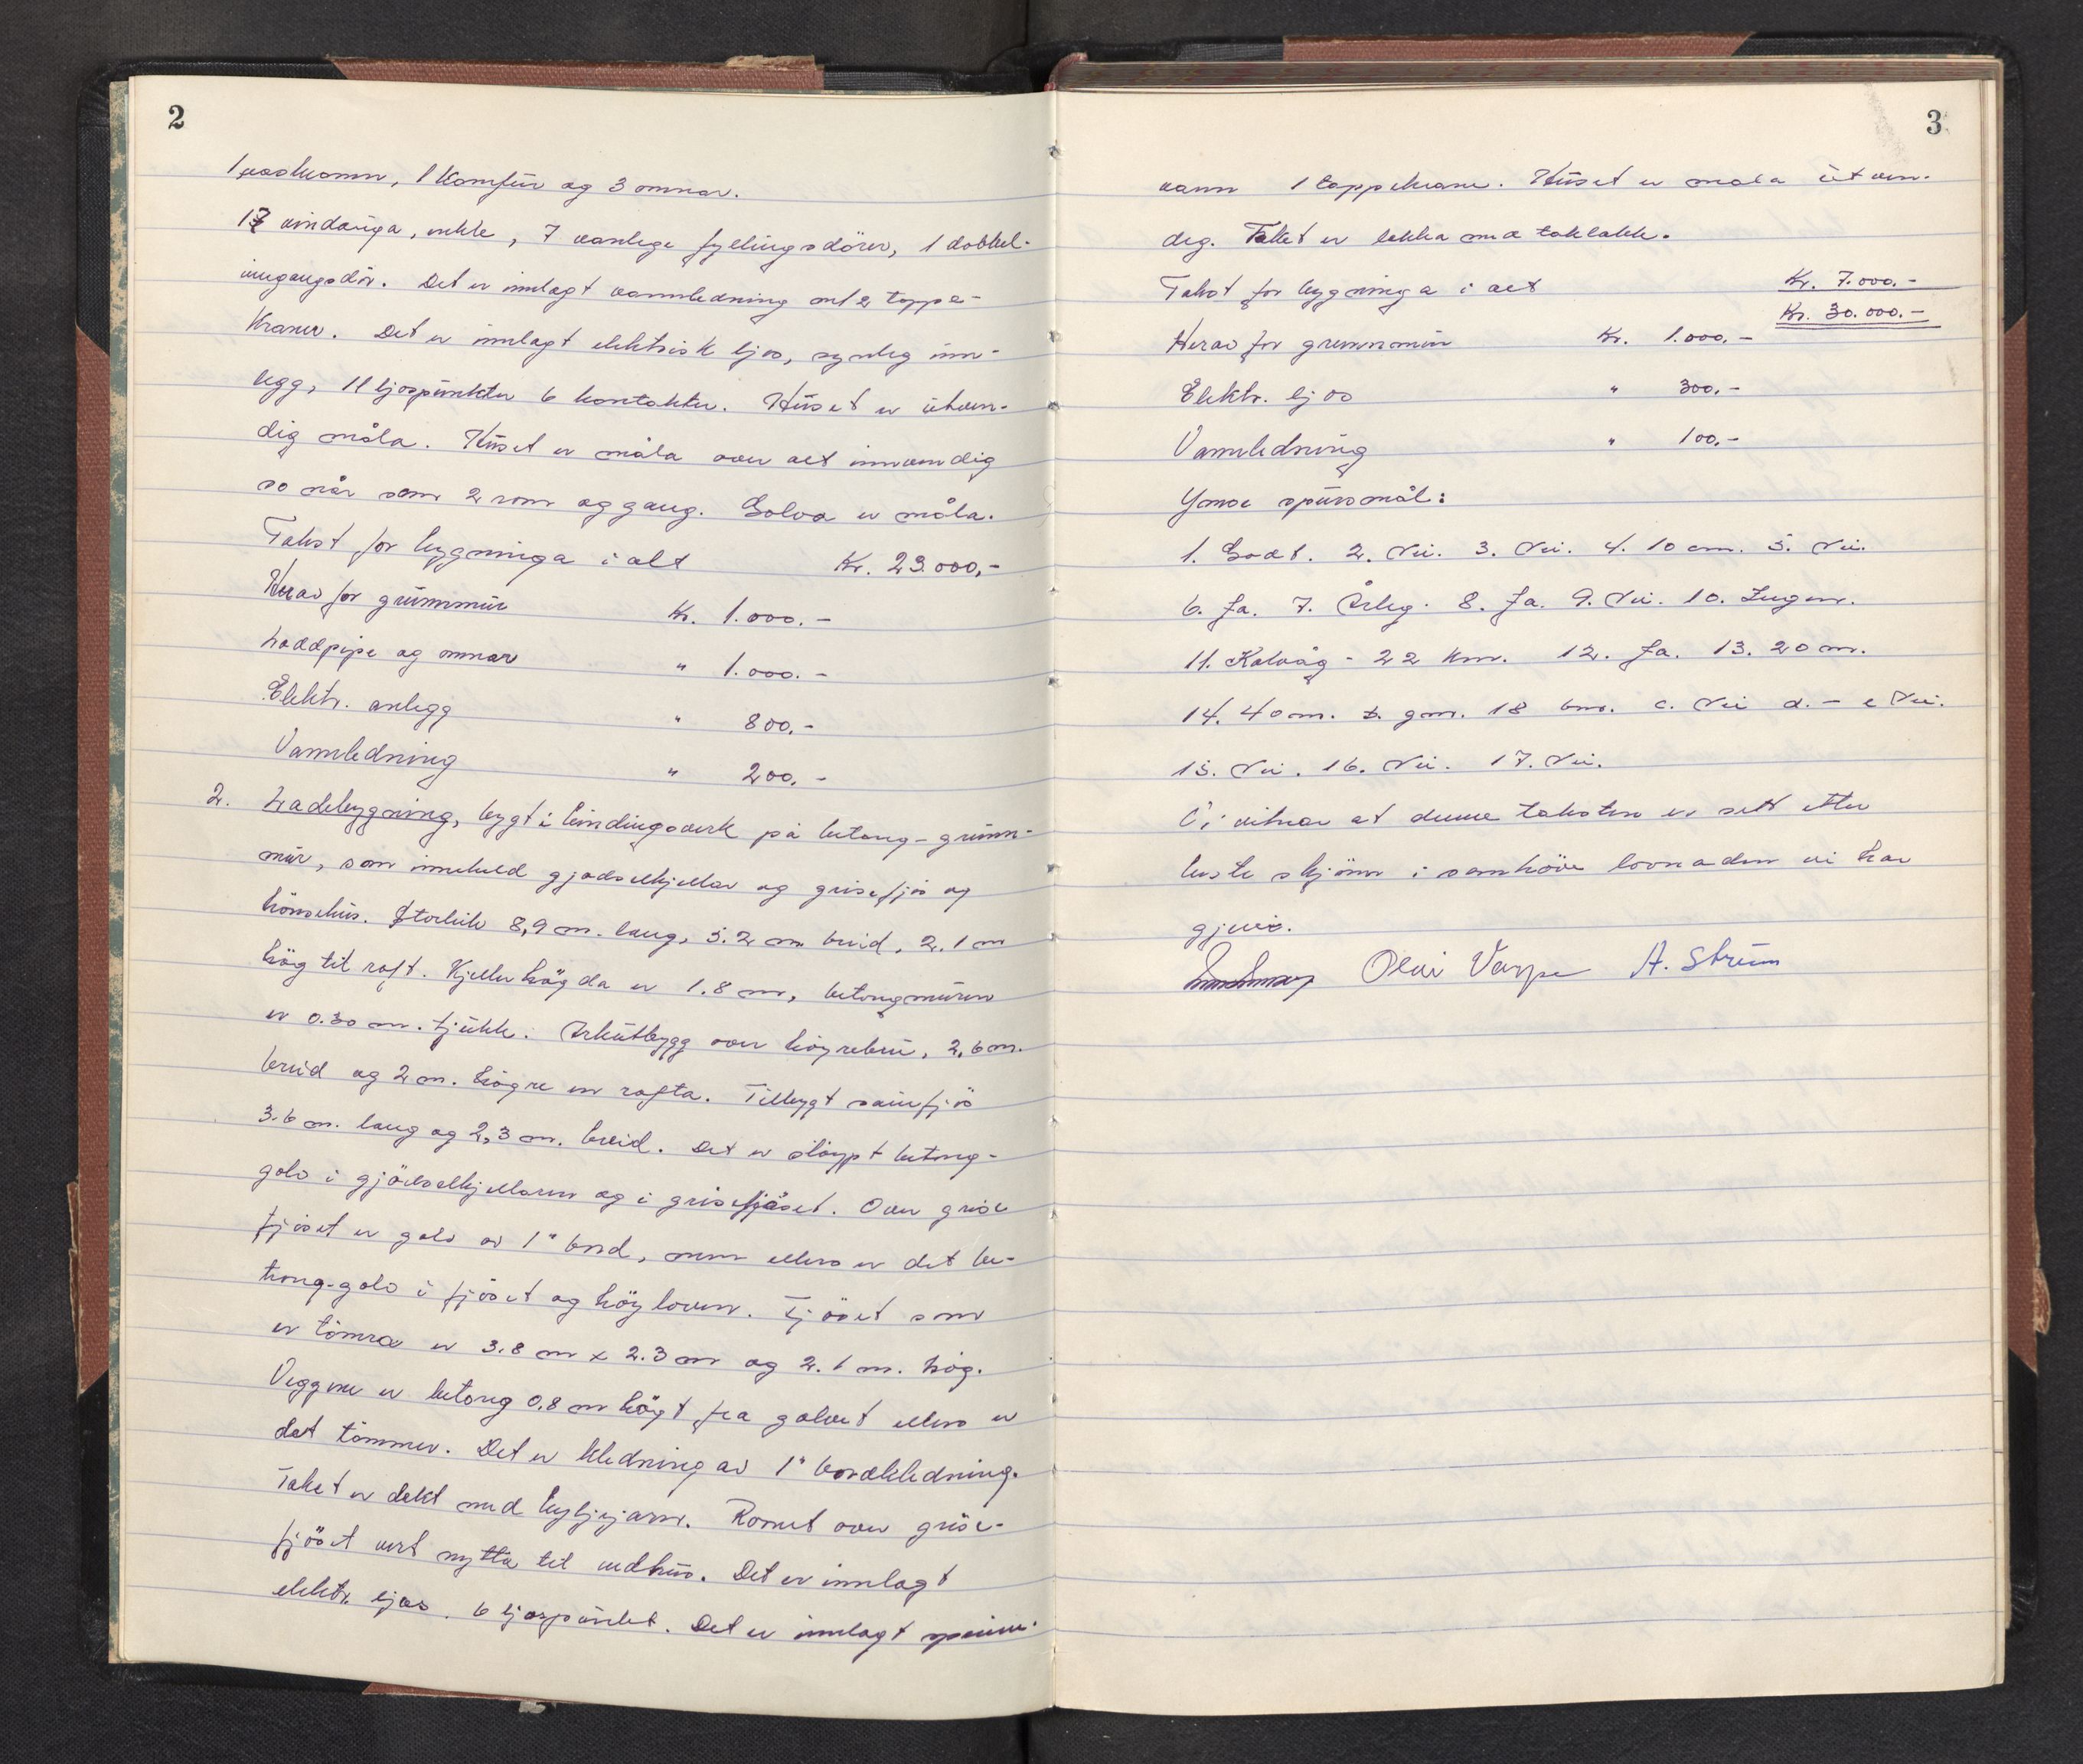 2
1 vaskeomn, 1 Komfür og 3 omnar.
17 vindauga, enkle, 7 vanlege fyllingsdörer, 1 dobbel-
inngangsdör. Det er innlagt vannledning med 2 tappe-
Kraner. Det er innlagt elektrisk ljos, synleg inn-
legg, 11 ljospunkter 6 kontakter. Huset er utven-
dig måla. Huset er måla over alt innvendig
so når som 2 rom og gang. Golva er måla.
Takst for bygninga i alt Kr. 23.000,-
Herav for grunnmur Kr. 1.000.-
Laddpipe og omnar " 1.000.-
Elektr. anlegg " 800,-
Vannledning " 200,-
2. Ladebygning, bygt i bindingsverk på betong-grunn-
mur, som inneheld gjødselkjellar og grisefjös og
hönsehus. Storleik 8,9 m. lang, 5.2 m breid, 2.1 m
hög til raft. Kjellerhögda er 1.8 m, betongmuren
er 0.30 m. tjukk. Arkutbygg over höyrebru, 2,6 m.
breid og 2 m. högre en rafta. Tilbygt sauefjös
3.6 m. lang og 2,3 m. breid. Det er støypt betong-
golv i gjödselkjellaren og i grisefjöset. Over grise
fjöset er golv av 1" bord, men ellers er det be-
tong-golv i fjöset og höyloven. Fjöset som
er tömra er 3.8 m x 2.3 m og 2.1 m. hög.
Veggene er betong 0.8 m högt fra golvet ellers er
det tömmer. Det er kledning av 1" bordkledning.
Taket er dekt med bylgjejarn. Romet over grise-
fjöset vert nytta til vedhus. Det er innlagt
elektr. ljos. 6 ljospunkt. Det er innlagt
3
vann 1 tappekrane. Huset er mala utven-
dig. Taket er lekka med taklakk.
Takst for bygninga i alt Kr. 7.000.-
Kr. 30.000.-
Herav for grunnmur Kr. 1.000,-
Elektr. ljos " 300,-
Vannledning " 100,-
Ymse spursmål:
1. Godt. 2. Nei. 3. Nei. 4. 10 cm. 5. Nei.
6. Ja. 7. Årleg. 8. Ja. 9. Nei. 10. Ingen.
11. Kalvåg - 22 km. 12. Ja. 13. 20 m.
14. 40 m. b. gm. 18 bm. c. Nei d. - e Nei.
15. Nei. 16. Nei. 17. Nei.
Vi vitnar at denne taksten er sett etter
beste skjönn i samhöve lovnaden vi har
gjeve.
Olai Varpe A. Strøm